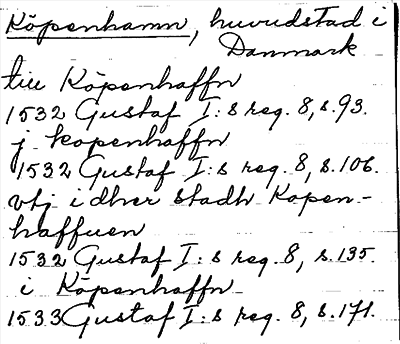 Köpenhamn, huvudstad i
Danmark
till Köpenhaffn
1532 Gustaf I:s reg. 8, s.93.
j kopenhaffn
1532 Gustaf I:s reg. 8, s.106.
vtj idher stadh Kopen-
haffuen
1532 Gustaf I:s reg. 8, s.135.
i Köpenhaffn
1533 Gustaf I:s reg. 8, s.171.